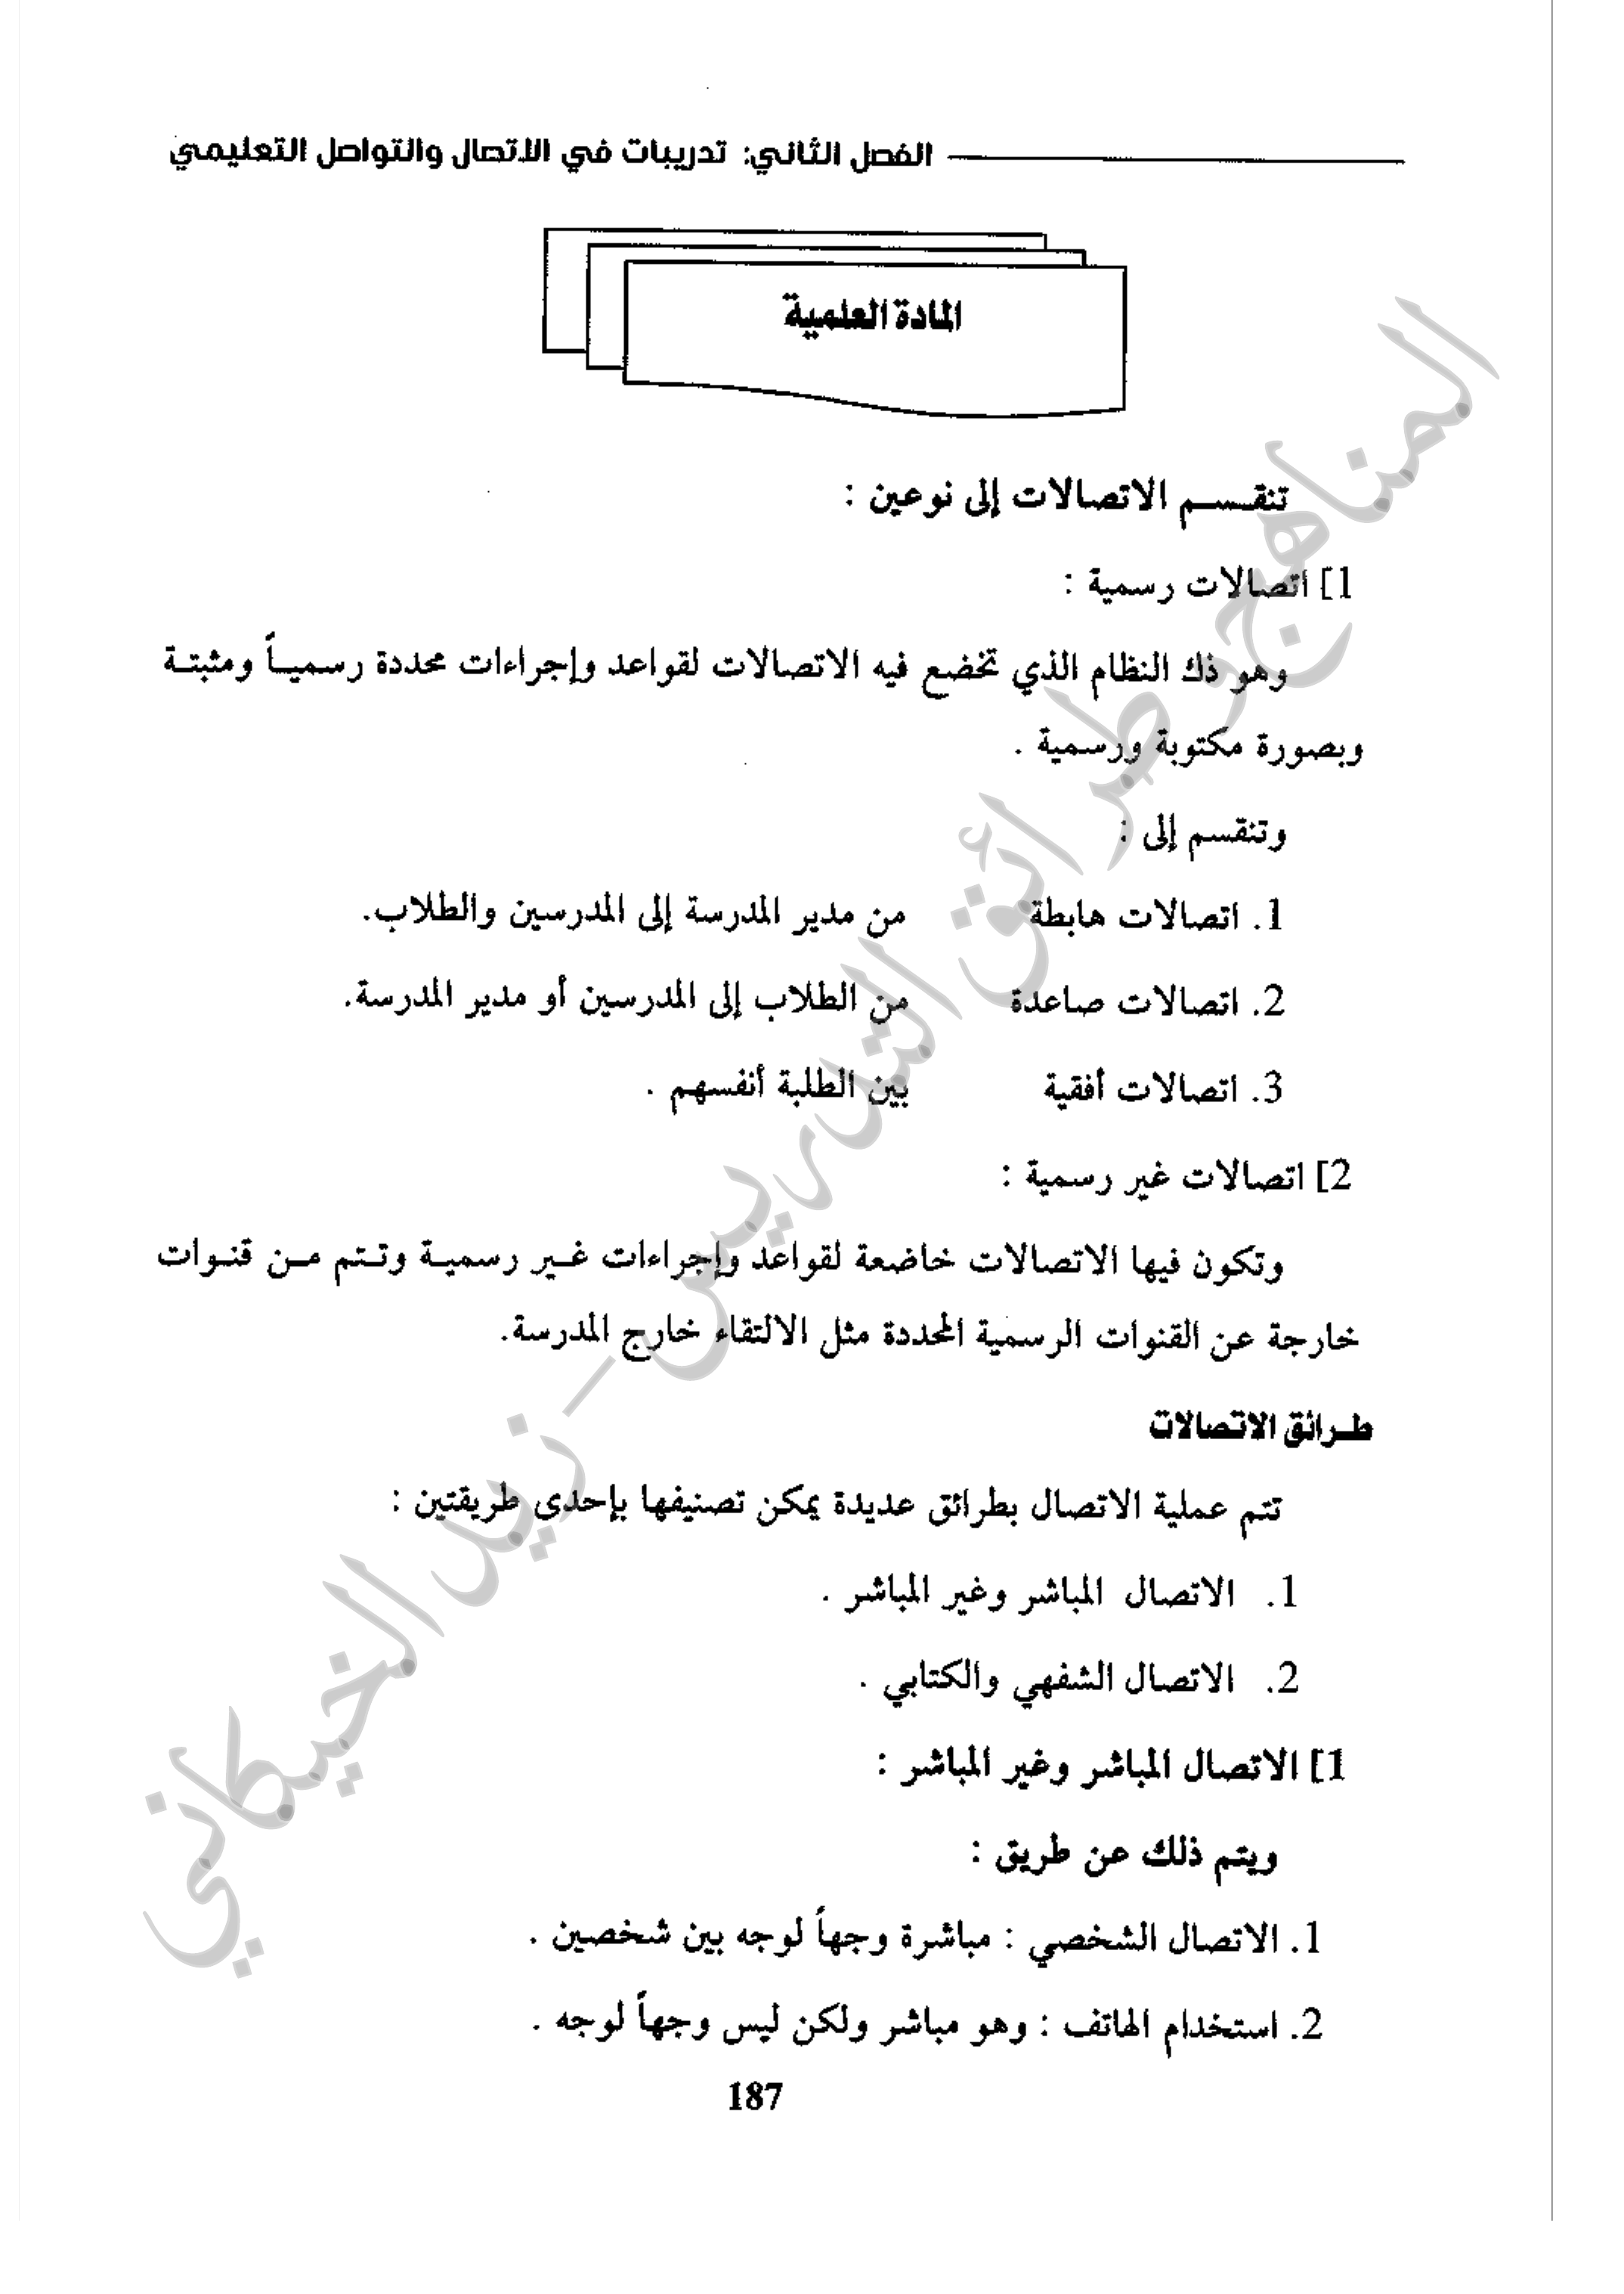 الفصل الثاني: تدريبات في الاتصال والتواصل التعليمي
المادة العلمية
تنقسم الاتصالات إلى نوعين :
1] اتصالات رسمية :
وهو ذك النظام الذي تخضع فيه الاتصالات لقواعد وإجراءات محددة رسمياً ومثبتة
وبصورة مكتوبة ورسمية .
وتنقسم إلى :
1. اتصالات هابطة من مدير المدرسة إلى المدرسين والطلاب.
2. اتصالات صاعدة من الطلاب إلى المدرسين أو مدير المدرسة.
3. اتصالات أفقية بين الطلبة أنفسهم .
2] اتصالات غير رسمية :
وتكون فيها الاتصالات خاضعة لقواعد وإجراءات غير رسمية وتتم من قنوات
خارجة عن القنوات الرسمية المحددة مثل الالتقاء خارج المدرسة.
طرائق الاتصالات
تتم عملية الاتصال بطرائق عديدة يمكن تصنيفها بإحدى طريقتين :
1. الاتصال المباشر وغير المباشر .
2. الاتصال الشفهي والكتابي .
1] الاتصال المباشر وغير المباشر :
ويتم ذلك عن طريق :
1. الاتصال الشخصي : مباشرة وجهاً لوجه بين شخصين .
2. استخدام الهاتف : وهو مباشر ولكن ليس وجهاً لوجه .
187
المناهج وطرائق التدريس - زيد الخيكاني